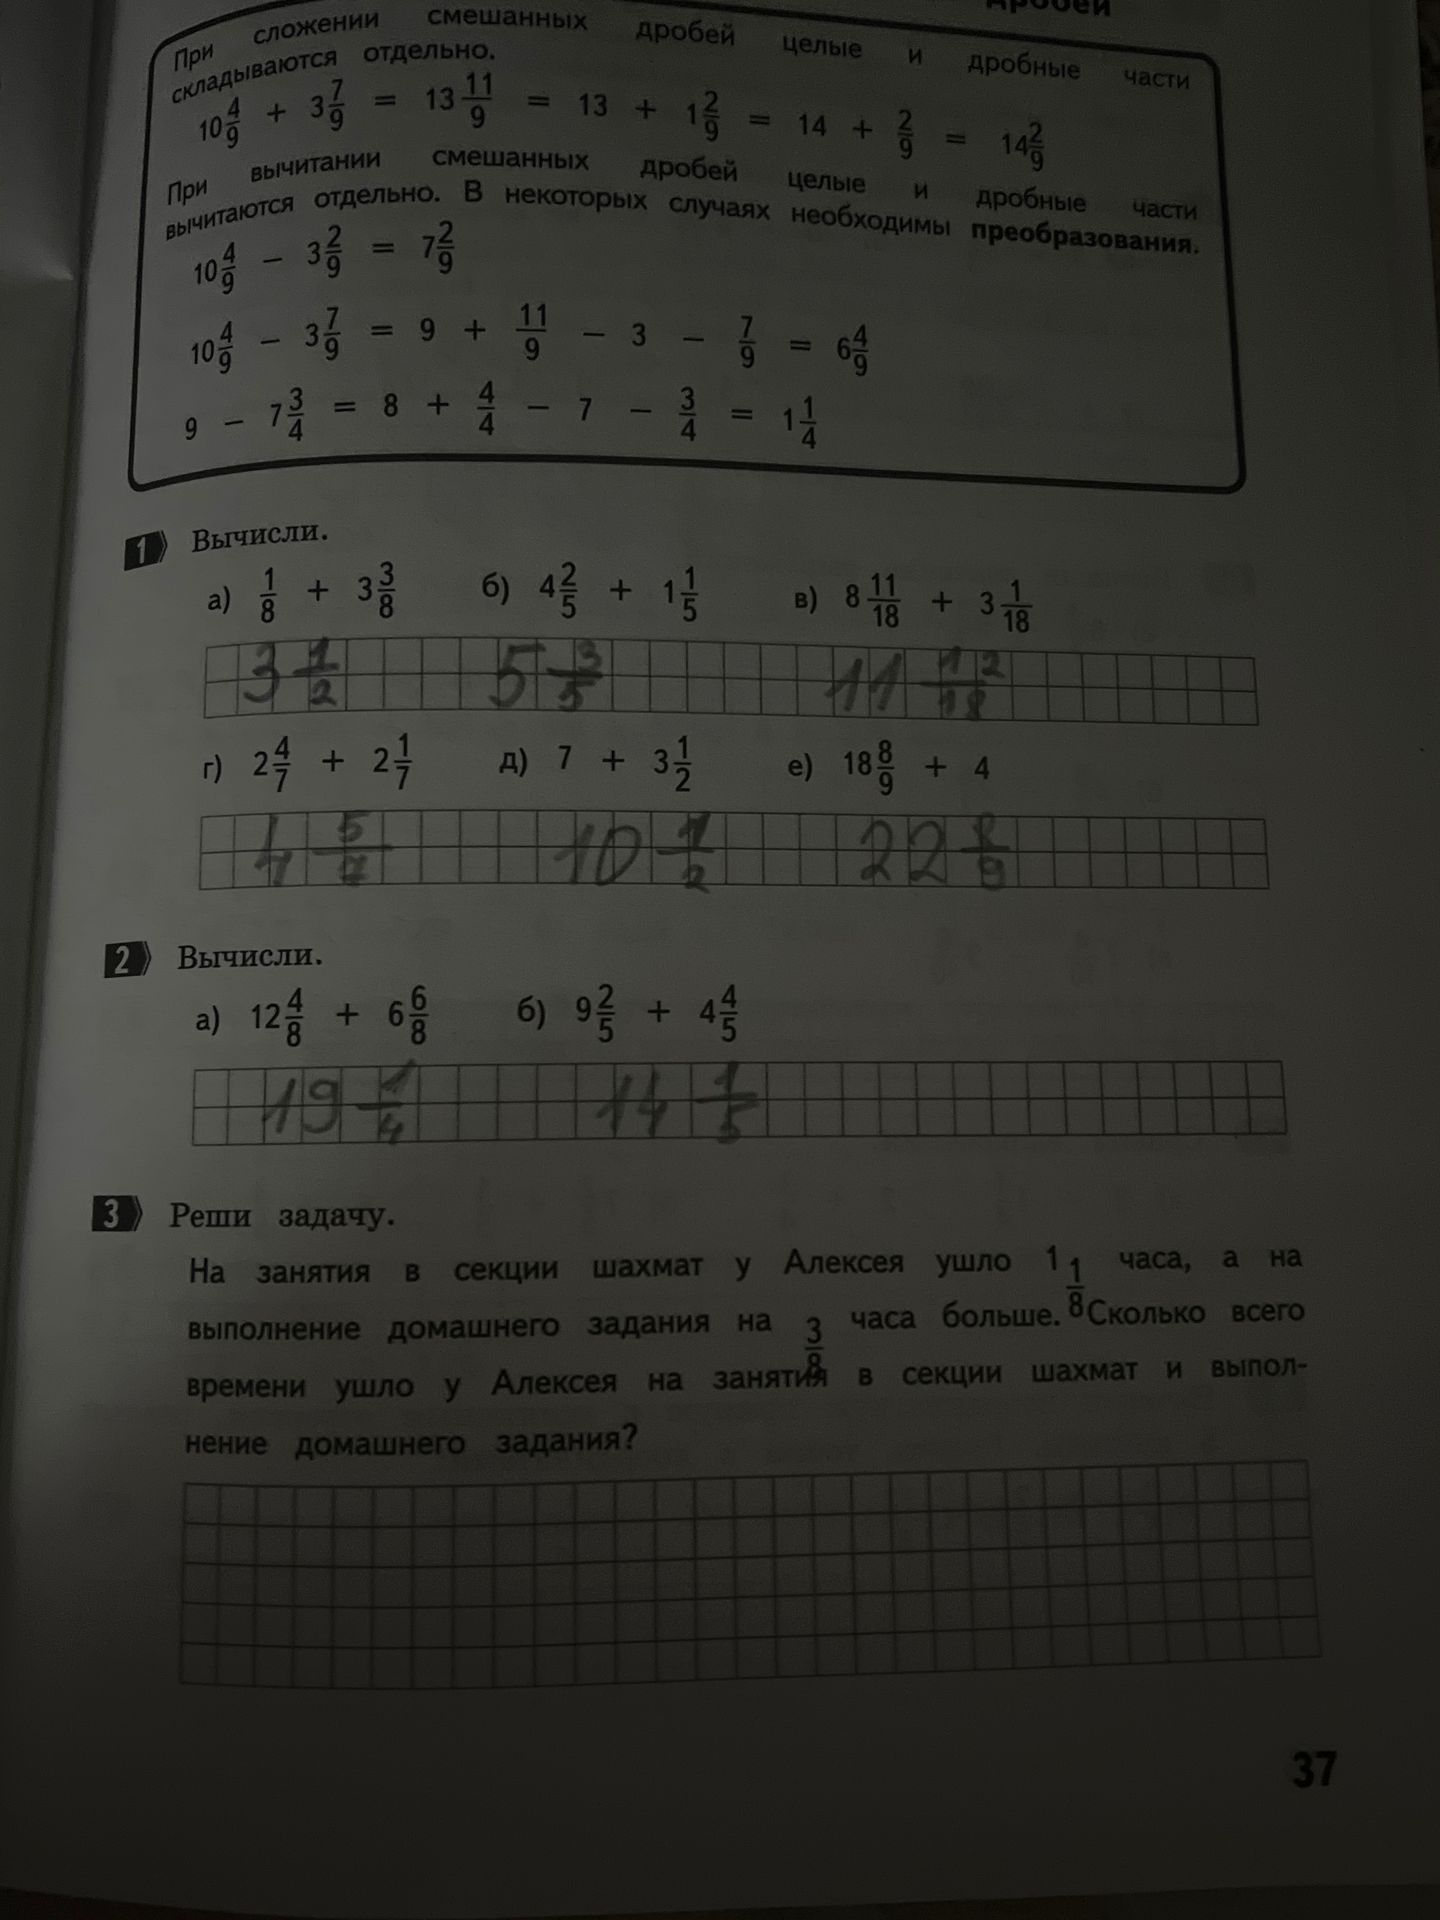 дробей
При сложении смешанных дробей целые и дробные части
складываются отдельно.
10 4/9 + 3 7/9 = 13 11/9 = 13 + 1 2/9 = 14 + 2/9 = 14 2/9
При вычитании смешанных дробей целые и дробные части
вычитаются отдельно. В некоторых случаях необходимы преобразования.
10 4/9 − 3 2/9 = 7 2/9
10 4/9 − 3 7/9 = 9 + 11/9 − 3 − 7/9 = 6 4/9
9 − 7 3/4 = 8 + 4/4 − 7 − 3/4 = 1 1/4
1 Вычисли.
а) 1/8 + 3 3/8 б) 4 2/5 + 1 1/5 в) 8 11/18 + 3 1/18
3 1/2 5 3/5 11 12/18
г) 2 4/7 + 2 1/7 д) 7 + 3 1/2 е) 18 8/9 + 4
4 5/7 10 1/2 22 8/9
2 Вычисли.
а) 12 4/8 + 6 6/8 б) 9 2/5 + 4 4/5
19 1/4 14 1/5
3 Реши задачу.
На занятия в секции шахмат у Алексея ушло 1 1/8 часа, а на
выполнение домашнего задания на 3/8 часа больше. Сколько всего
времени ушло у Алексея на занятия в секции шахмат и выпол-
нение домашнего задания?
37